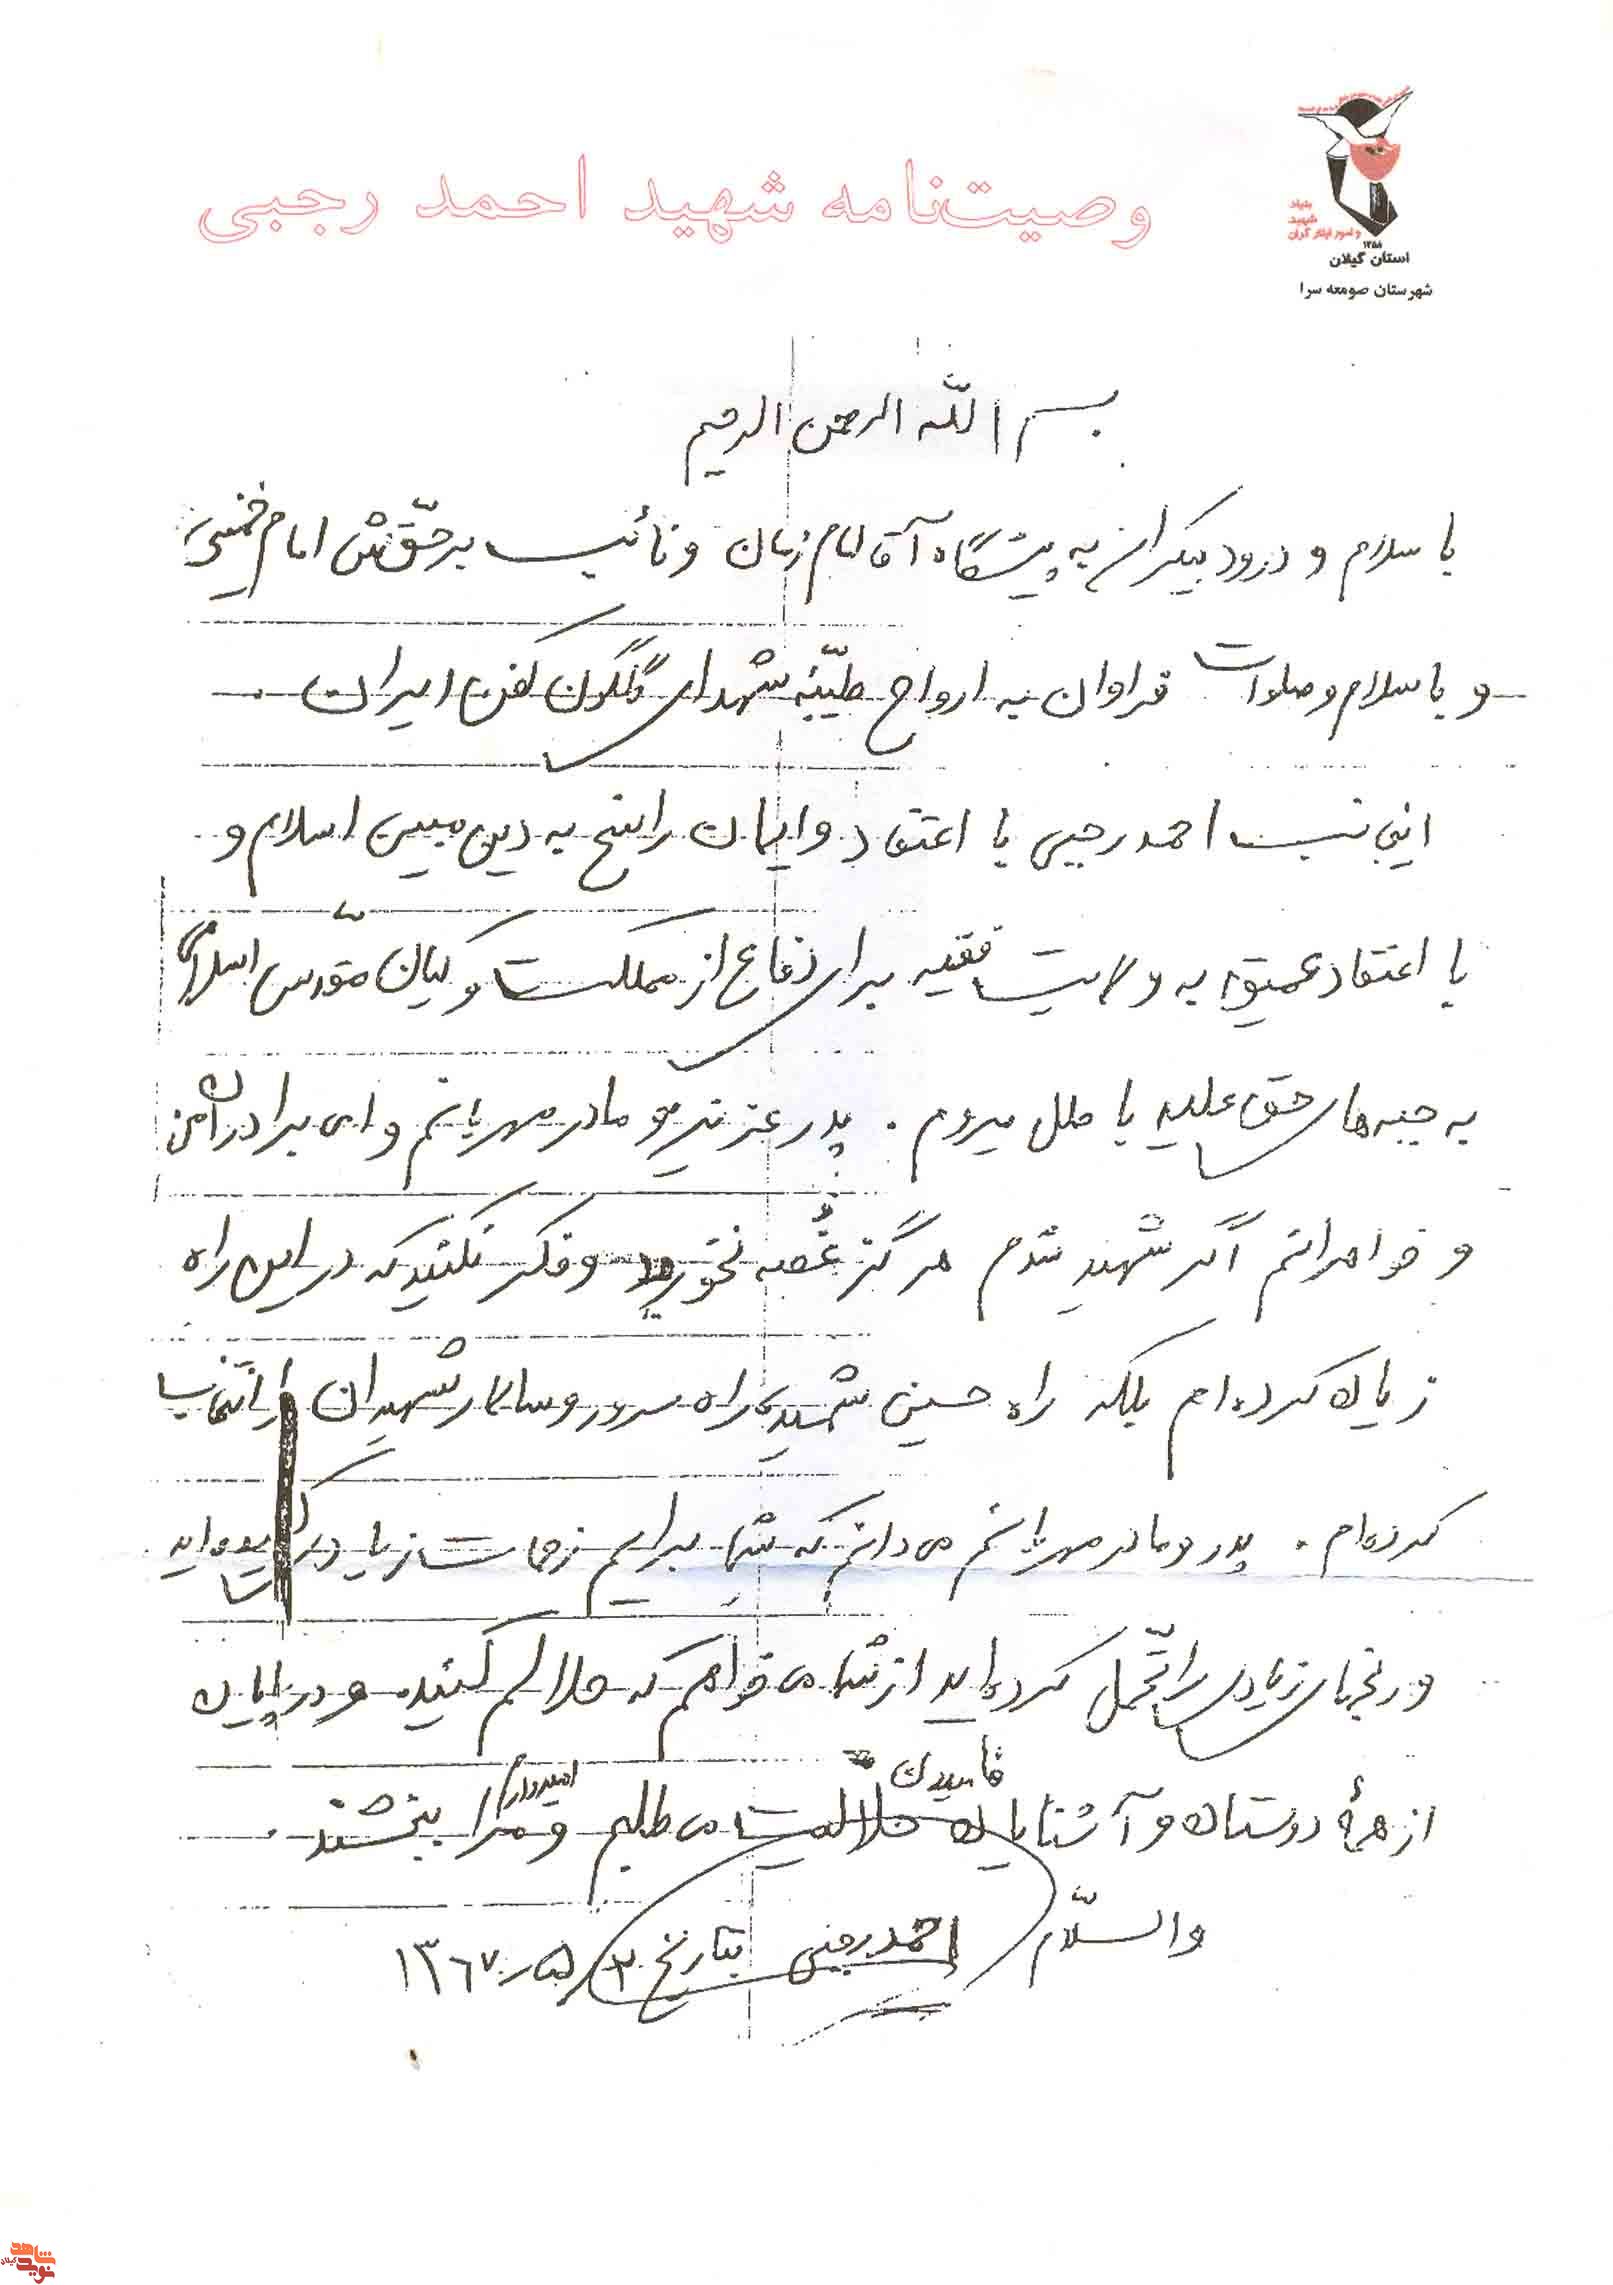 وصیت‌نامه شهید احمد رجبی
بنیاد
شهید
و امور ایثارگران
۱۳۵۸
استان گیلان
شهرستان صومعه سرا
بسم الله الرحمن الرحیم
با سلام و درود بیکران به پیشگاه آقا امام زمان و نائب برحقّش امام خمینی
و با سلام و صلوات فراوان به ارواح طیّبّه شهدای گلگون کفن ایران .
اینجانب احمد رجبی با اعتقاد و ایمان راسخ به دین مبین اسلام و
با اعتقاد عمیق به ولایت فقیه برای دفاع از مملکت و کیان مقدّس اسلامی
به جبهه های حق علیه باطل میروم . پدر عزیز و مادر مهربانم و ای برادران من
و خواهرانم اگر شهید شدم هرگز غُصه نخورید و فکر نکنید که در این راه
زیان کرده ام بلکه راه حسین شهید، راه سرور و سالار شهیدان را انتخاب
کرده ام . پدر و مادر مهربانم می دانم که شما برایم زحمات زیادی کشیده اید
و رنجهای زیادی را تحّمل کرده اید از شما می خواهم که حلالم کنید. و در پایان
از همهٔ دوستان و آشنایان فامیلان حلالیت می طلبم و امیدوارم مرا ببخشند .
والسّلام احمد رجبی بتاریخ ۱۳۶۷/۵/۳
نوید شاهد
گیلان